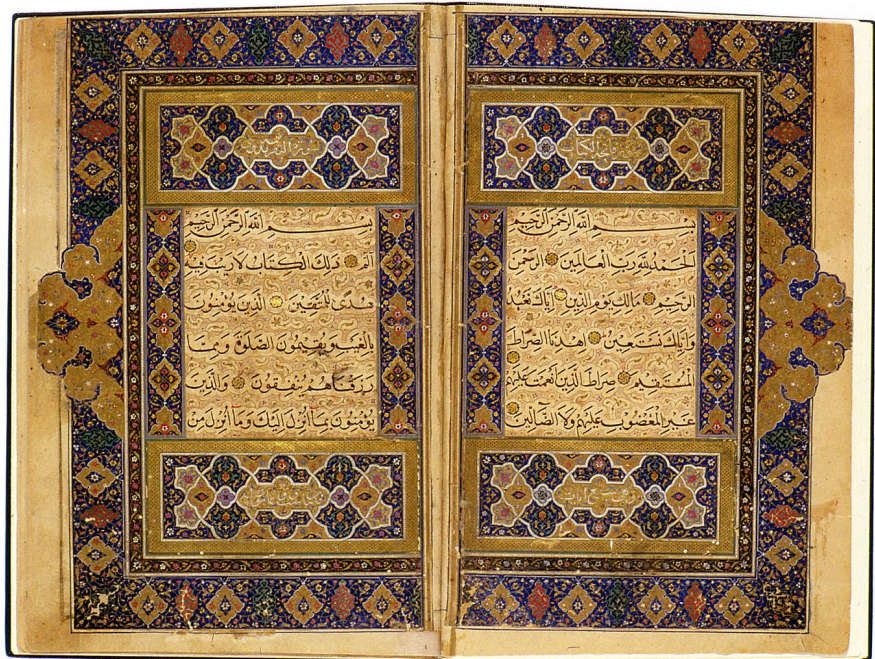 سورة فاتحة الكتاب
بسم الله الرحمن الرحيم
الحمد لله رب العالمين الرحمن
الرحيم مالك يوم الدين إياك نعبد
وإياك نستعين اهدنا الصراط
المستقيم صراط الذين أنعمت عليهم
غير المغضوب عليهم ولا الضالين
وهي سبع آيات
سورة البقرة
بسم الله الرحمن الرحيم
الم ذلك الكتاب لا ريب فيه
هدى للمتقين الذين يؤمنون
بالغيب ويقيمون الصلوة ومما
رزقناهم ينفقون والذين
يؤمنون بما أنزل إليك وما أنزل من